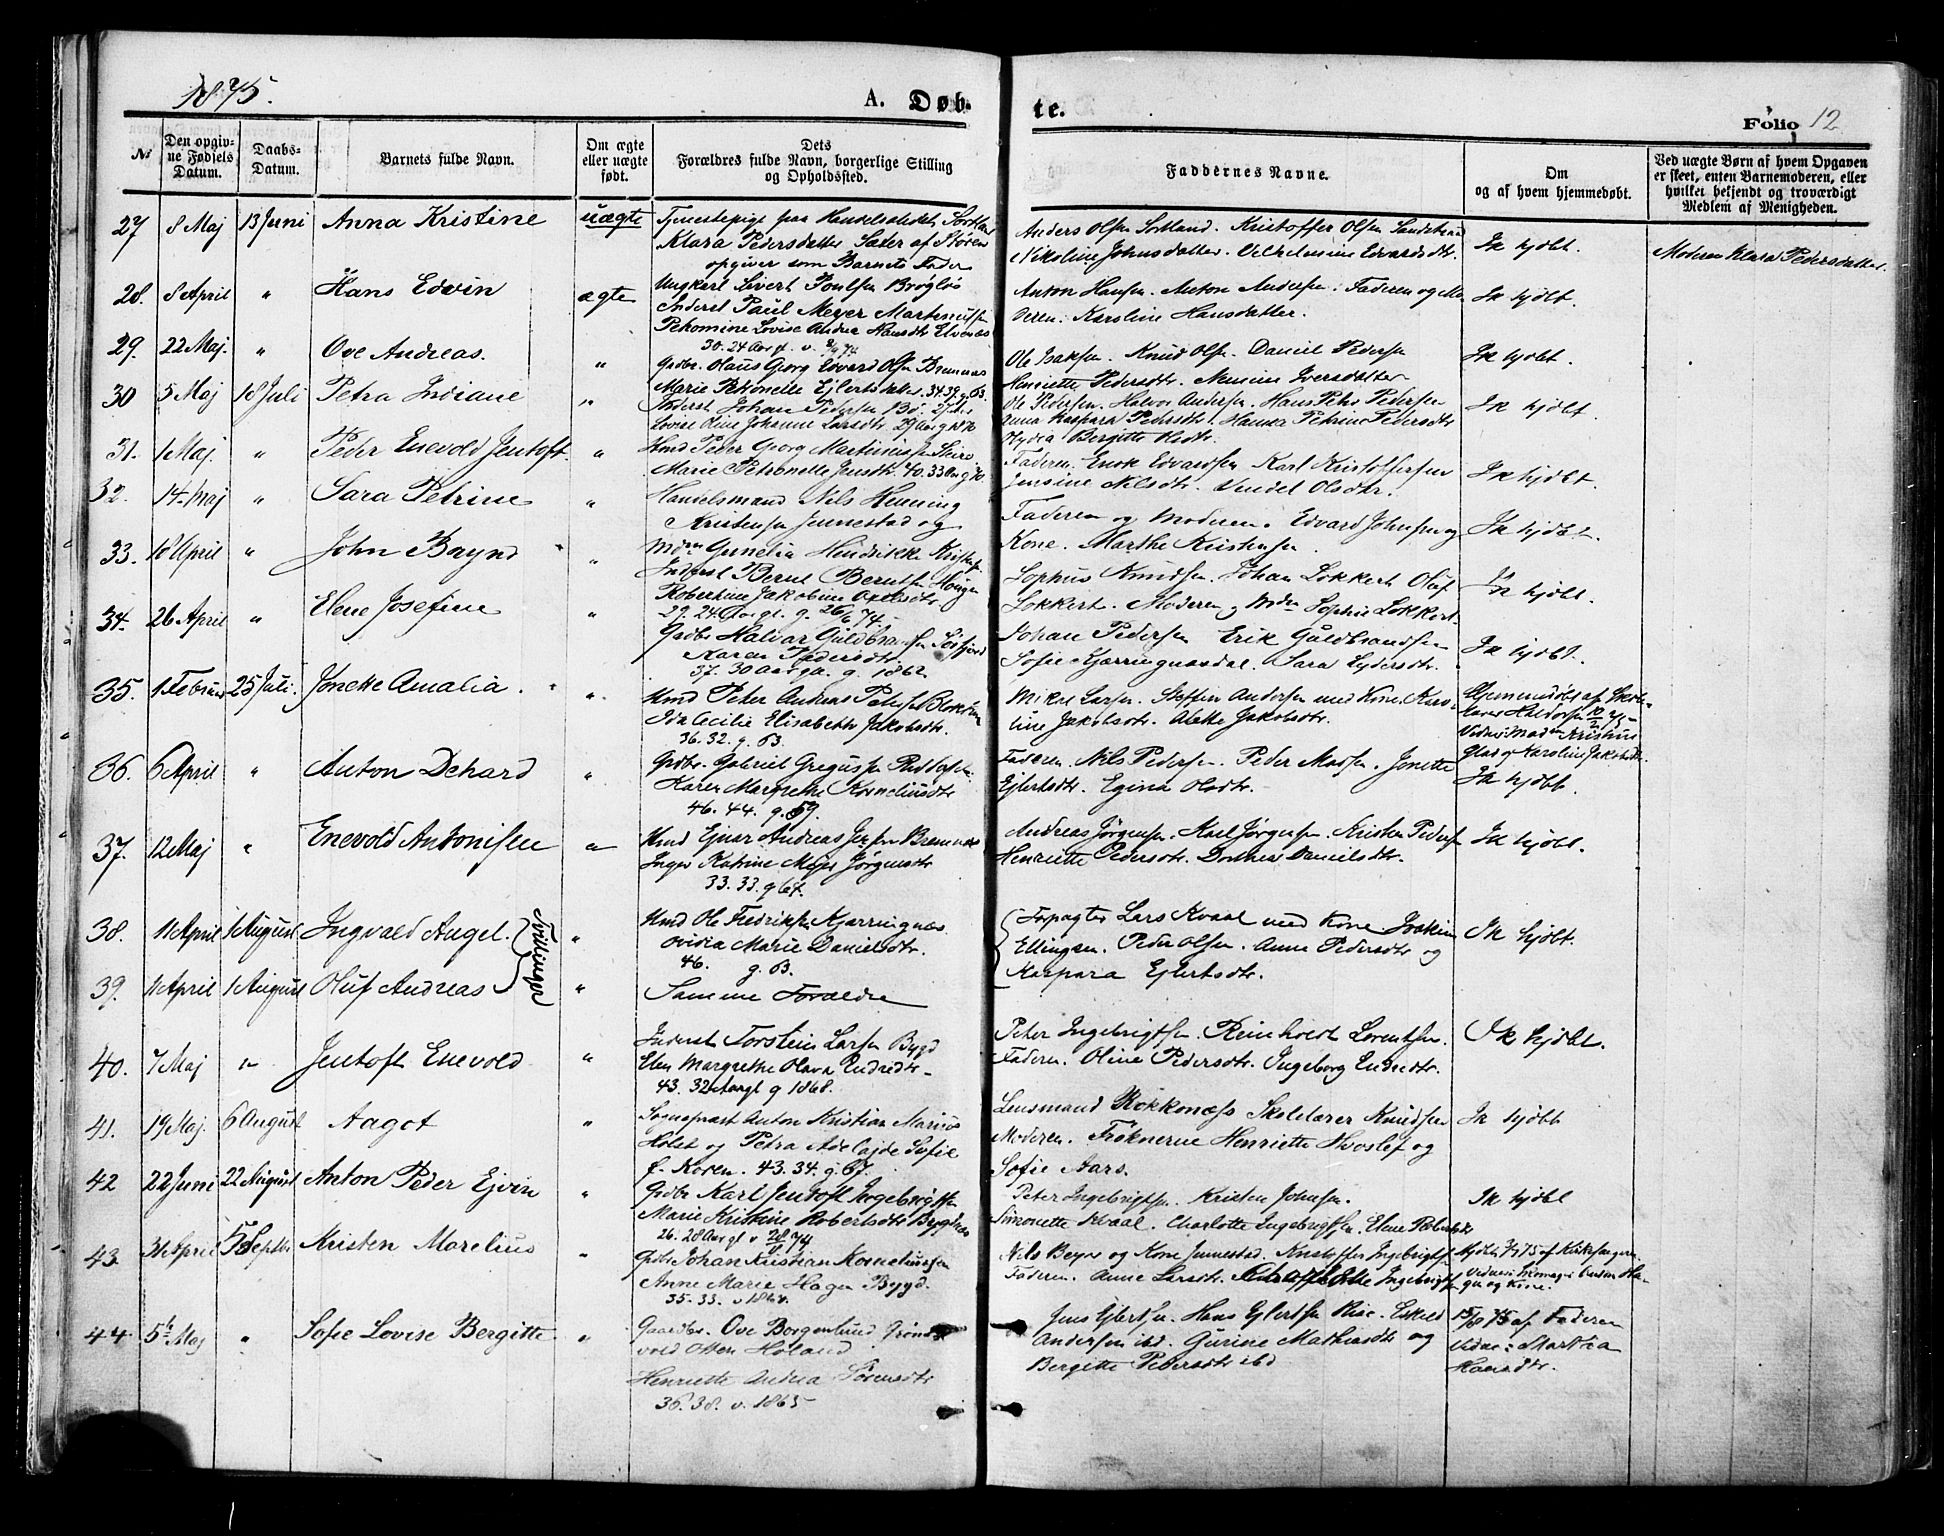 1875. A. Døb- te. Folio 12
No Den opgivne Fødsels Datum. Daabs-Datum. Barnets fulde Navn. Om ægte eller uægte født. Dets Forældres fulde Navn, borgerlige Stilling og Opholdssted. Faddernes Navne. Om og af hvem hjemmedøbt. Ved uægte Børn af hvem Opgaven er skeet, enten Barnemoderen, eller hvilket bekjendt og troværdigt Medlem af Menigheden.
27 8 Maj 13 Juni Anna Kristine uægte Tjenestepige paa Handelsstedet Sortland
Klara Pedersdatter Sæter af Støren
opgiver som Barnets Fader
Ungkarl Sivert Poulsen
Anders Olsen Sortland. Kristoffer Olsen
Nikoline Johnsdatter. Vilhelmine Edvardsdtr. Ik hjdbt. Moderen Klara Pedersdatter
28. 8 April " Hans Edvin ægte Inderst Paul Meyer Martinussen
Petromine Lovise Andrea Hansdtr Elvenæs
30. 24 Aar gl. v. 74
Anton Hansen. Anton Andersen. Faderen og Mo-
deren. Karoline Hansdatter. Ik hjdbt.
29. 22 Maj. " Ove Andreas. " Grdbr. Olaus Georg Edvard Olsen Bremnæs
Marie Petronelle Ejlertsdatter. 34. 39. g. 63.
Ole Isaksen. Knud Olsen. Daniel Pedersen
Henriette Pedersdtr. Iversdatter Ik hjdbt.
30 5 Maj 18 Juli Petra Indiane " Inderst Johan Pedersen Bø.
Johanne Larsdtr
Ole Pedersen. Halvor Andersen. Hans Peter Pedersen
Anna Kaspara Pedersdtr. Hansa Petrine Pedersdtr
Bergitte Olsdtr. Ik hjdbt.
31. 1 Maj. " Peder Enevold Jentoft. " Hmd Peder Georg Martinussen
Marie Petronelle Jensdtr. 40. 33 Aar g. 70
Faderen. Enok Edvardsen Karl Kristoffersen
Jensine Nilsdtr. Vendel Olsdtr. Ik hjdbt.
32. 14 Maj " Sara Petrine " Handelsmand Nils Henning
Kristensen Jennestad og
Cornelia Hendrikke
Faderen og Moderen. Edvard Johnsen og
Kone. Marthe Kristensen. Ik hjdbt.
33. 18 April " John Baynd " Inderst Bernt Berntsen Haugen
Robertine Jakobine
29. 24 Aar gl. g. 26/6 74.
Sophus Knudsen. Johan Lokkert Oluf
Lokkert. Moderen og Mdm Sophie Lokkert. Ik hjdbt.
34. 26 April " Elene Josefine " Grdbr Halvar Guldbrandsen
Karen Pedersdtr.
37. 30 Aar g. 1862
Johan Pedersen Erik Guldbrandsen
Sofie Kjærringnæsdal. Sara Ik hjdbt.
35. 1 Februar 25 Juli. Jonette Amalia. " Hmd Peter Andreas Petersen
Ida Cecilie Elisabeth Jakobsdtr.
36. 32. g. 63.
Mikal Larsen. Steffen Andersen med Kone Karo-
line Jakobsdtr. Alette Jakobsdtr.
Hjemmedøbt af Sko-
lelærer Haldorsen 10/2 75
Glad og Karoline Jakobsdtr.
36. 6 April " Anton Dehard " Grdbr. Gabriel Gregussen
Karen Margrethe Korneliusdtr
46. 44. g. 59.
Faderen. Nils Pedersen. Peder Madsen. Jonette
Ejlertsdtr. Egina Olsdtr. Ik hjdbt.
37. 12 Maj " Enevold Antonisen " Hmd Ejnar Andreas Jensen Bremnæs
Inger Katrine Meyer Jørgensdtr
33. 33. g 64.
Andreas Jørgensen. Karl Jørgensen. Kristen Pedersen
Henriette Pedersdtr. Dorthea Danielsdtr. Ik hjdbt.
38. 11 April 1 August Ingvald Angel. Tvillinger " Hmd Ole Fredriksen Kjærringnæs.
Ovidia Marie Danielsdtr.
46. g. 63.
Forpagter Lars Kvaal med Kone Joakim
Ellingsen. Peder Olsen. Anne Pedersdtr og
Kaspara Ejlertsdtr. Ik hjdbt.
39. 11 April 1 August Oluf Andreas " Samme Forældre
40. 7 Maj " Jentoft Enevold " Inderst Torstein Larsen Bygd
Elen Margrethe Olava Endredtr
43. 32 Aar gl g 1868.
Peter Ingebrigtsen. Reinholdt Lorentsen.
Faderen. Oline Pedersdtr. Ingeborg Endredtr. Ik hjdbt.
41. 19 Maj. 6 August Aagot " Sogneprest Anton Kristian Marius
Holst og Petra Adelajde Sofie
f. Koren. 43. 34. g. 67.
Lensmand Rokkonæs Skolelærer Knudsen
Moderen. Frøknerne Henriette Hvoslef og
Sofie Aars. Ik hjdbt
42 22 Juni 22 August Anton Peder Ejvin " Grdbr Karl Jentoft Ingebrigtsen
Marie Kristine Robertsdtr Bygdnæs
26. 28 Aar gl v 28/ 74
Peter Ingebrigtsen. Kristen Johnsen.
Simonette Kvaal. Charlotte Ingebrigtsen. Elene Ik hjdbt
43. 31 April 5 Septbr Kristen Marelius " Grdbr Johan Kristian Korneliussen
Anne Marie Hagen Bygd.
35. 33. v 1864.
Nils Beyer og Kone Jennestad. Kristoffer Ingebrigtsen
Faderen. Anne Larsdtr. Ingebrigtsen
Hjdbt 75 af Kirkesangeren
Vidner: Anton Ha-
gen og Kone.
44. 5te Maj " Sofie Lovise Bergitte " Gaardbr. Ove Borgenlund Grønd-
vold Otten Holand
Henriette Andrea Sørensdtr
36. 38. v. 1865
Jens Ejlertsen. Hans Ejlertsen Rise. Eskild
Andersen ibd. Gurine Mathisdtr og
Bergitte Pedersdtr ibd
15/8 75 af Faderen
Vidne: Martha
Hansdtr.